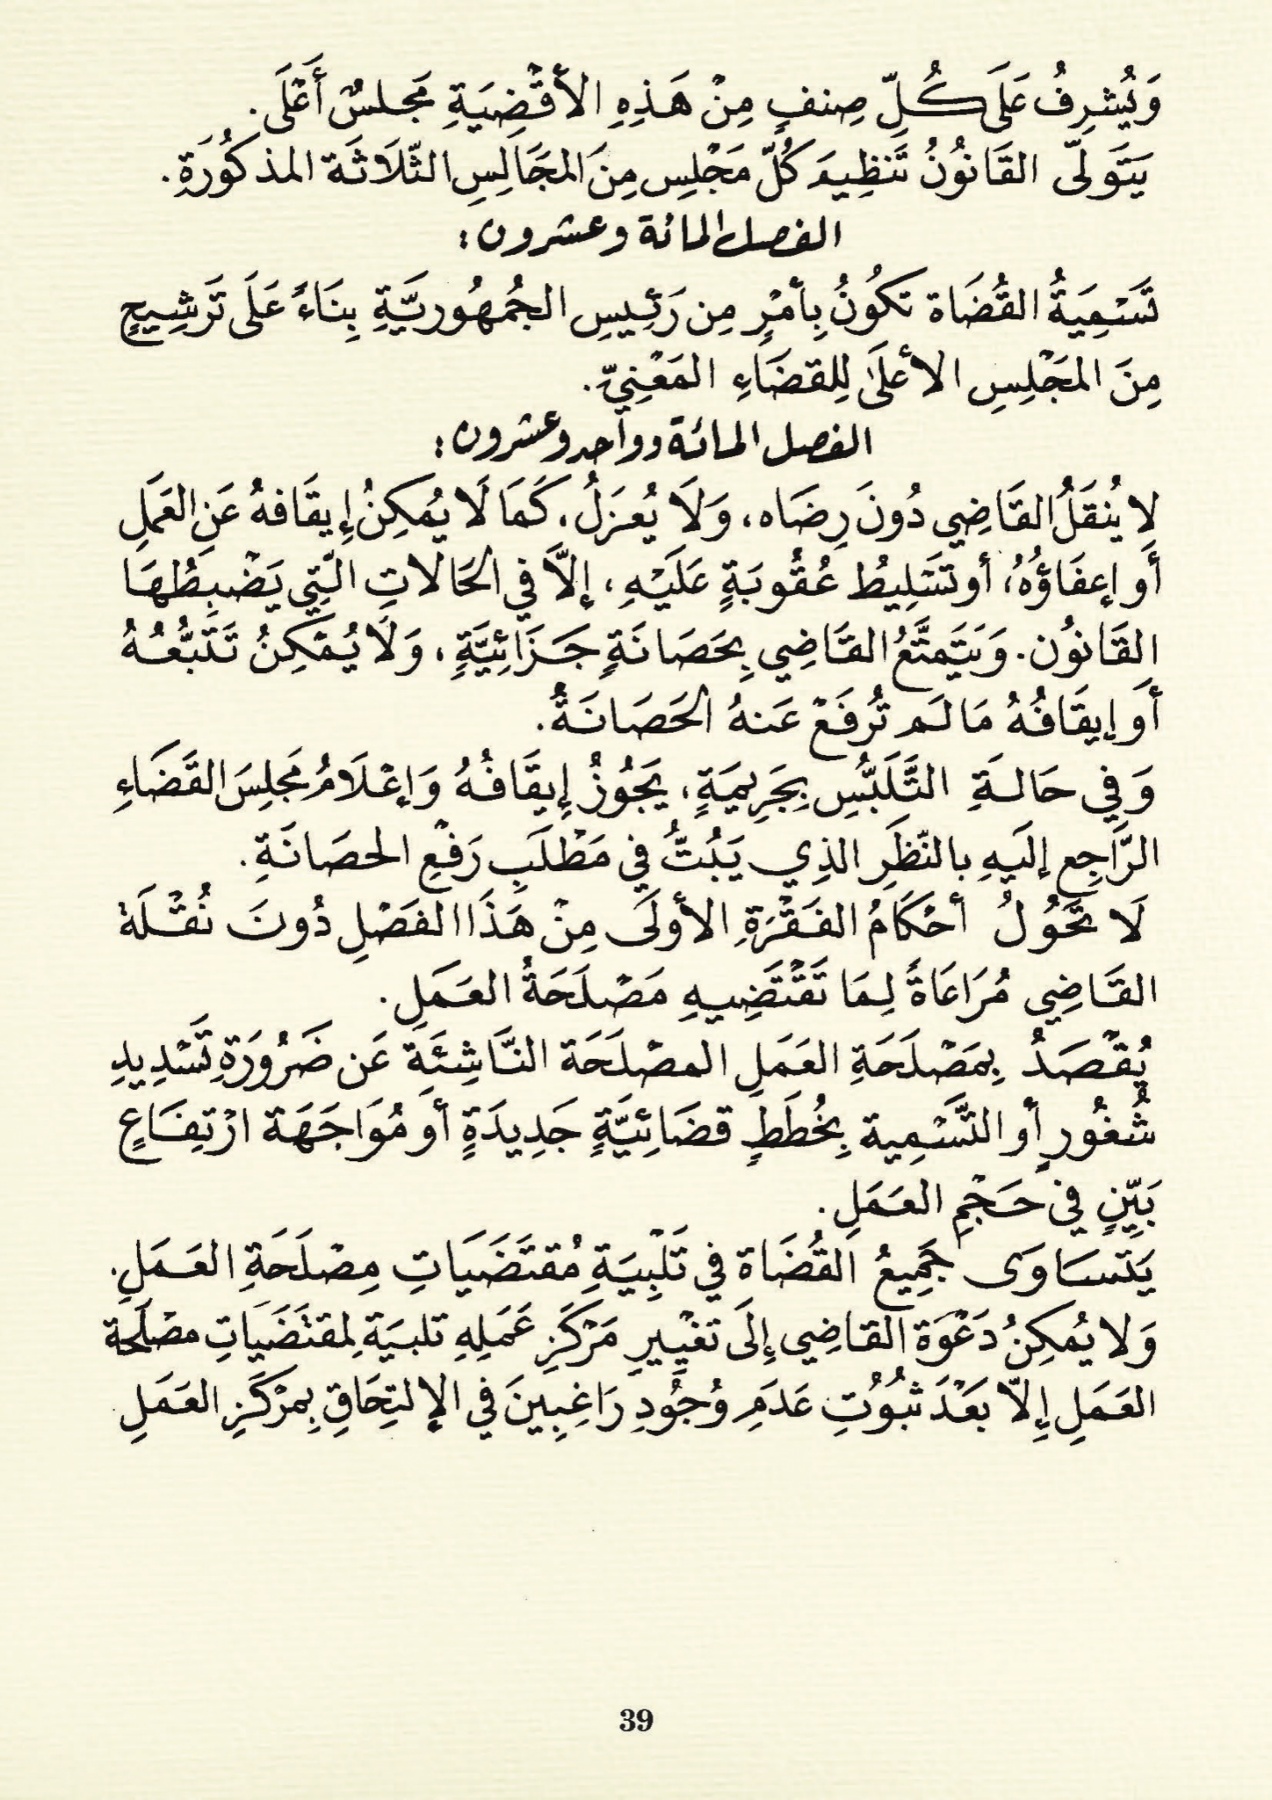 وَيُشرِفُ عَلَى كُلِّ صِنفٍ مِنْ هَذِهِ الأَقْضِيَةِ مَجلسٌ أَعْلَى.
يَتَوَلَّى القَانُونُ تَنظِيمَ كُلِّ مَجْلِسٍ مِنَ المَجَالِسِ الثَّلَاثَة المذكُورَةِ.
الفصل المائة وعشرون:
تَسْمِيَةُ القُضَاة تكُونُ بِأمْرٍ مِن رَئِيسِ الجُمهُوريَّةِ بِنَاءً عَلَى تَرشِيحٍ
مِنَ المَجْلِسِ الأعْلَى لِلقضَاءِ المَعْنِيّ.
الفصل المائة وواحد وعشرون:
لا يُنقَلُ القَاضِي دُونَ رِضَاه، وَلَا يُعزَلُ، كَمَا لَا يُمكِنُ إِيقَافهُ عَنِ العَمَلِ
أَو إعفَاؤُهُ، أو تَسْلِيطُ عُقُوبَةٍ عَلَيْهِ، إلَّا في الحَالاتِ الَّتِي يَضْبِطُهَا
القَانُون. وَيَتَمتَّعُ القَاضِي بِحَصَانَةٍ جَزَائِيَّةٍ، وَلَا يُمْكِنُ تَتَبُّعُهُ
أَو إيقَافُهُ مَا لَم تُرفَعْ عَنهُ الحَصَانَةُ.
وَفِي حَالةِ التَّلَبُّسِ بِجَرِيمَةٍ، يَجُوزُ إِيقَافُهُ وَإعْلَامُ مَجلِسَ القَضَاءِ
الرَّاجِعِ إلَيهِ بالنَّظَرِ الذِي يَبُتُّ فِي مَطْلَبِ رَفْعِ الحصَانَةِ.
لَا تَحُولُ أحْكَامُ الفَقْرَةِ الأولَى مِنْ هَذَا الفَصْلِ دُونَ نُقْلَة
القَاضِي مُرَاعَاةً لِمَا تَقْتَضِيهِ مَصْلَحَةُ العَمَلِ.
يُقْصَدُ بِمَصْلَحَةِ العَمَلِ المصْلَحَة النَّاشِئَة عَن ضَرُورَةِ تَسْدِيدِ
شُغُورٍ أو التَّسْمِية بِخُطَطٍ قضَائِيَّةٍ جَدِيدَةٍ أو مُوَاجَهَة ارْتِفَاعٍ
بَيِّنٍ في حَجْمِ العَمَلِ.
يَتَسَاوَى جَمِيعُ القُضَاة فِي تَلْبِيَةِ مُقتَضَيَاتِ مِصْلَحَةِ العَمَلِ.
وَلا يُمكِنُ دَعْوَة القاضِي إِلَى تغيْيرِ مَرْكَزِ عَمَلِهِ تلبيَة لِمقتَضَيَاتِ مصْلَحة
العَمَلِ إِلّا بَعْدَ ثبُوُتِ عَدَمِ وُجُودِ رَاغِبِينَ فِي الإلتِحَاقِ بِمرْكَزِ العَمَلِ
39